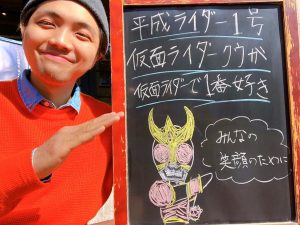 平成ライダー1号
仮面ライダークウガ
仮面ライダーで1番好き
みんなの
笑顔のために